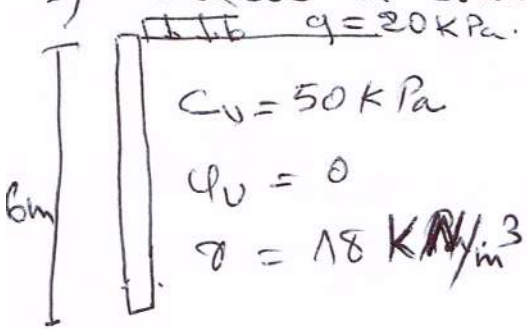 q = 20 KPa.
Cu = 50 KPa
φu = 0
6m
γ = 18 KN/m³